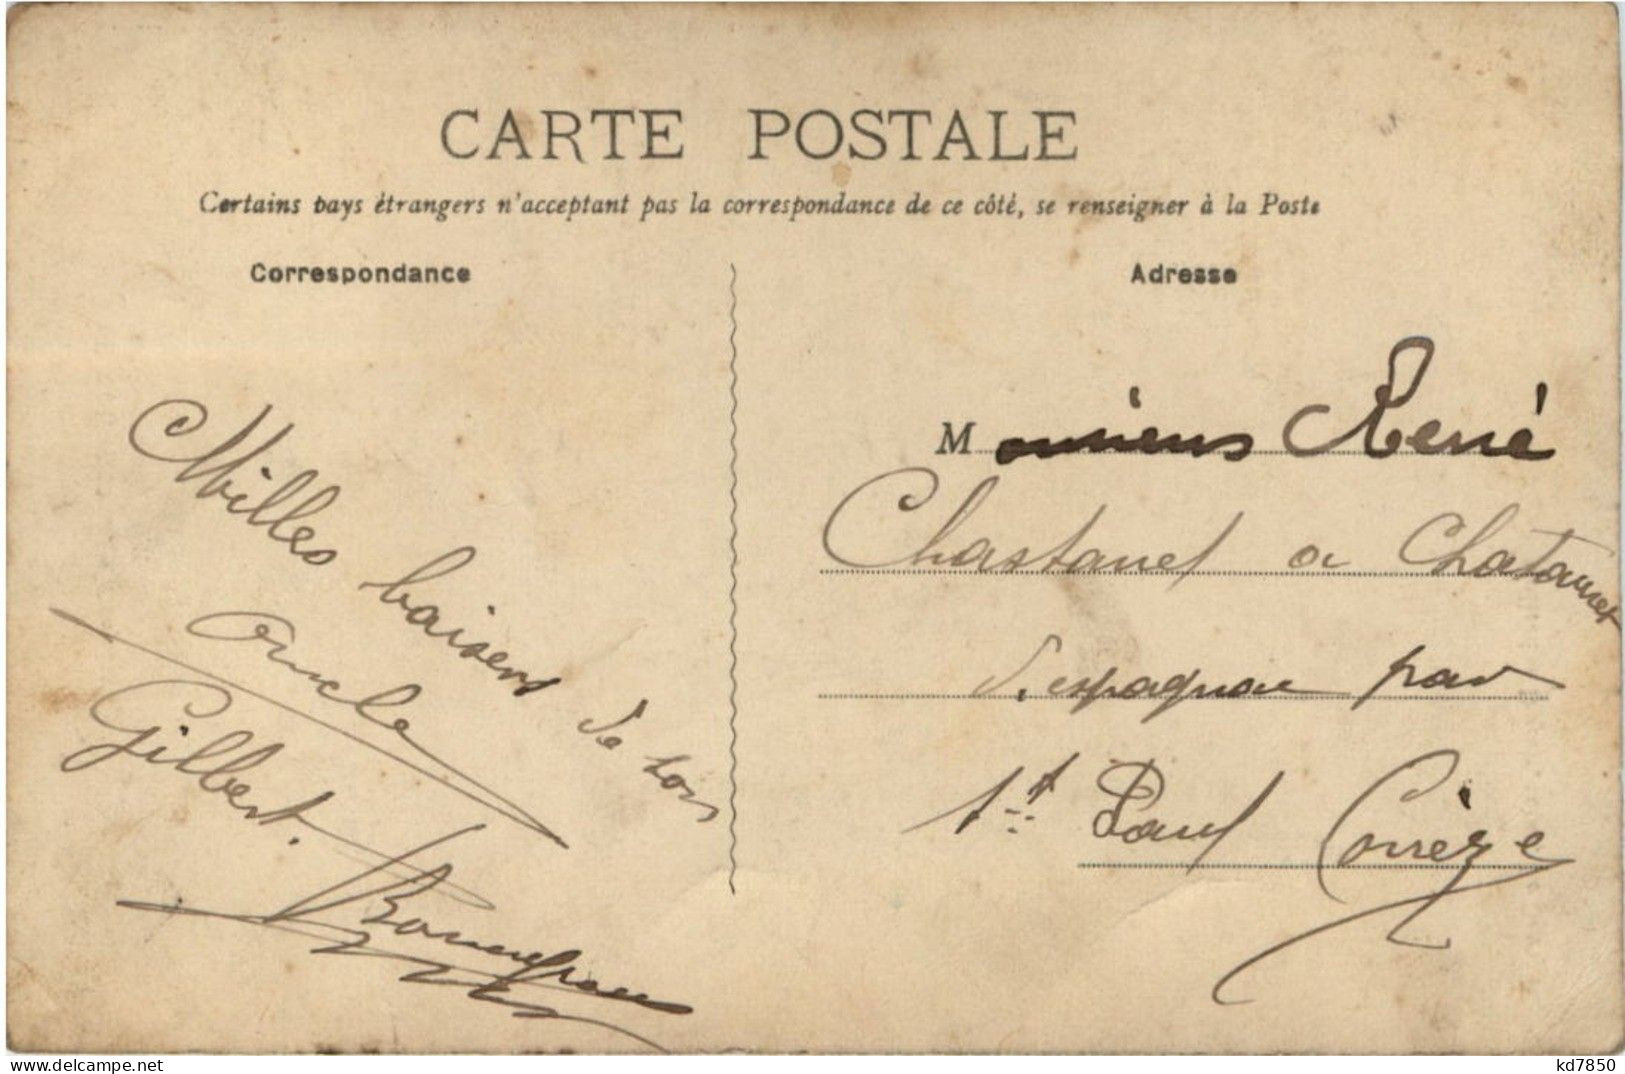 CARTE POSTALE
Certains pays étrangers n'acceptant pas la correspondance de ce côté, se renseigner à la Poste
Correspondance
Milles baisers de ton
oncle
Gilbert.
Adresse
Monsieur René
Chastanet a Chatannet
d'espagnac par
St Paul Corrèze
www.delcampe.net
kd7850